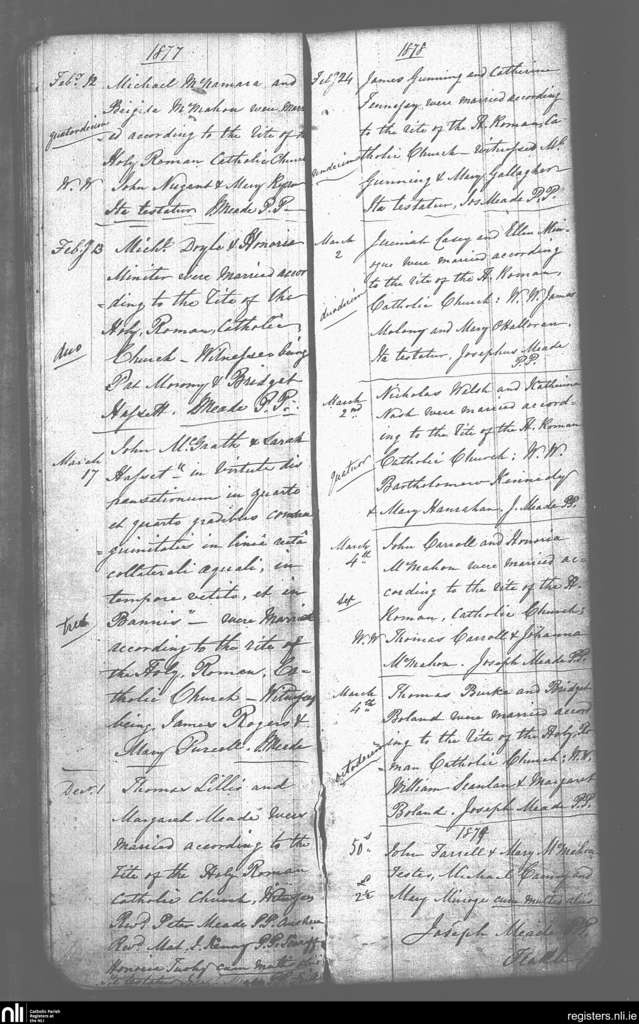 1877
Feby. 12 Michael McNamara and
Brigida McMahon were marri
quatordecim ed according to the Rite of the
Holy Roman Catholic Church
W. W John Nugent & Mary Ryan
Ita testatur JMeade P.P.
Feby. 13 Michl. Doyle & Honoria
Minster were Married accor
=ding to the Rite of the
Holy, Roman, Catholic
duo Church - Witnesses being
Pat Morony & Bridget
Hassett. JMeade P.P.
John McGrath & Sarah
March 17 Hasset" in virtute dis
pensationum in quarto
et quarto gradibus consan
=guinitatis in linea
collaterali aequali, in
tempore vetito, et in
tres Bannis" - were Married
according to the rite of
the Holy, Roman, Ca-
tholic Church - Witnesses
being, James Rogers &
Mary Purcell. JMeade
Decr. 1 Thomas Lillis and
Margaret Meade were
married according to the
Rite of the Holy Roman
Catholic Church, Witnesses
Revd. Peter Meade P.P.
Revd. Mat. J. Kenny P.P. Scariff
Honoria Tuohy cum multis aliis
Ita testatur
1878
Feby. 24 James Gunning and Catherine
Fennessy were married according
to the rite of the H. Roman, Ca
undecim tholic Church - witnesses Ml.
Gunning & Mary Gallagher
Ita testatur, Jos Meade P.P.
March 2 Jeremiah Casey and Ellen Min-
ogue were married according
to the rite of the H. Roman,
duodecim Catholic Church: W. W. James
Molony and Mary O'Halloran.
Ita testatur, Josephus Meade
P.P.
March 2nd Nicholas Walsh and Katherine
Nash were married accord-
ing to the rite of the H. Roman
quatuor Catholic Church: W. W.
Bartholomew Kennedy
& Mary Hanrahan, J. Meade P.P.
March 4th John Carroll and Honoria
McMahon were married ac-
cording to the rite of the H.
sex Roman, Catholic Church:
W. W Thomas Carroll & Johanna
McMahon. Joseph Meade P.P.
March 4th Thomas Burke and Bridget
Boland were married accord
ing to the Rite of the Holy Ro
octodecim man Catholic Church: W. W.
William Scanlan & Margaret
Boland. Joseph Meade P.P.
1879
50s John Farrell & Mary McMahon
£ Testes, Michael and
2 Mary Minoge cum multis aliis
Joseph Meade P.P.
nli Catholic Parish
Registers at
the NLI
registers.nli.ie